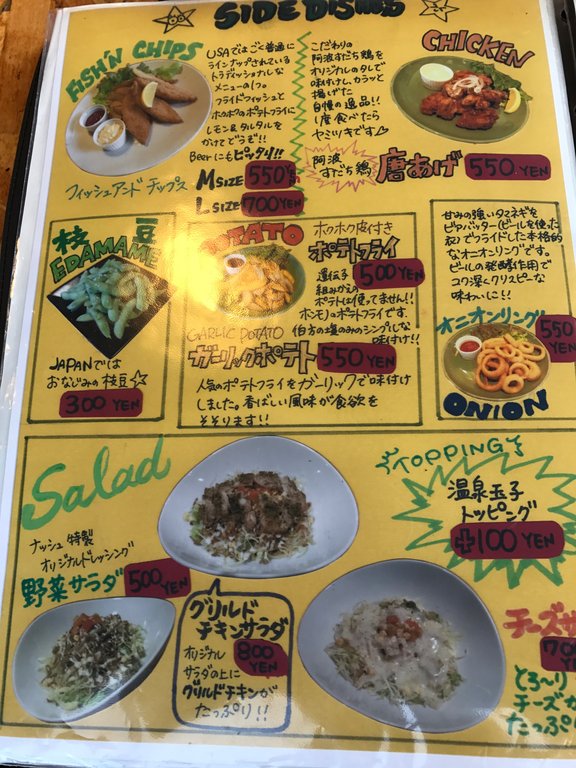 SIDE DISHES
FISH'N CHIPS
USAではごく普通に
ラインナップされている
トラディショナルな
メニューの1つ。
フライドフィッシュと
ホクホクのポテトフライに
レモン&タルタルを
かけてどうぞ!!
Beerにもピッタリ!!
フィッシュアンド チップス
M SIZE 550YEN
L SIZE 700YEN
CHICKEN
こだわりの
阿波すだち鶏を
オリジナルのタレで
味付けし、カラッと
揚げた
自慢の逸品!!
1度食べたら
ヤミツキです
阿波
すだち鶏
唐あげ 550YEN
枝豆
EDAMAME
JAPANでは
おなじみの枝豆☆
300 YEN
POTATO
ホクホク皮付き
ポテトフライ
500YEN
遺伝子
組みかえの
ポテトは使ってません!!
ホンモノのポテトフライです。
伯方の塩のみのシンプルな
味付け!!
GARLIC POTATO
ガーリックポテト 550YEN
人気のポテトフライをガーリックで味付け
しました。香ばしい風味が食欲を
そそります!!
甘みの強いタマネギを
ビアバッター(ビールを使った
衣)でフライドした本格的
なオニオンリングです。
ビールの発酵作用で
コク深くクリスピーな
味わいに!!
オニオンリング 550YEN
ONION
Salad
ナッシュ特製
オリジナルドレッシング
野菜サラダ 500YEN
グリルド
チキンサラダ
オリジナル 800YEN
サラダの上に
グリルドチキンが
たっぷり!!
TOPPING
温泉玉子
トッピング
+100YEN
チーズサ
とろ〜り
チーズが
たっぷ